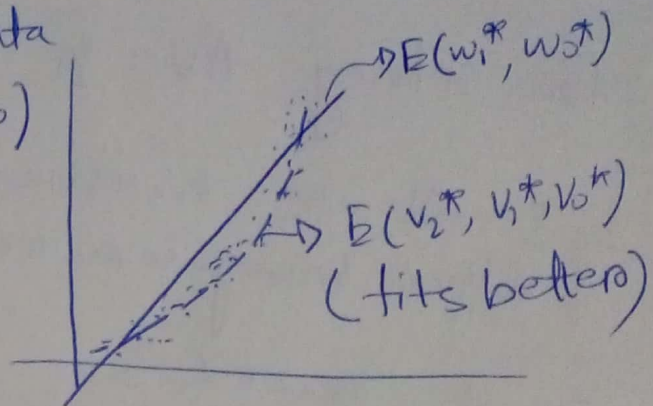 ta
)
E(w₁*, w₀*)
E(v₂*, v₁*, v₀*)
(fits better)